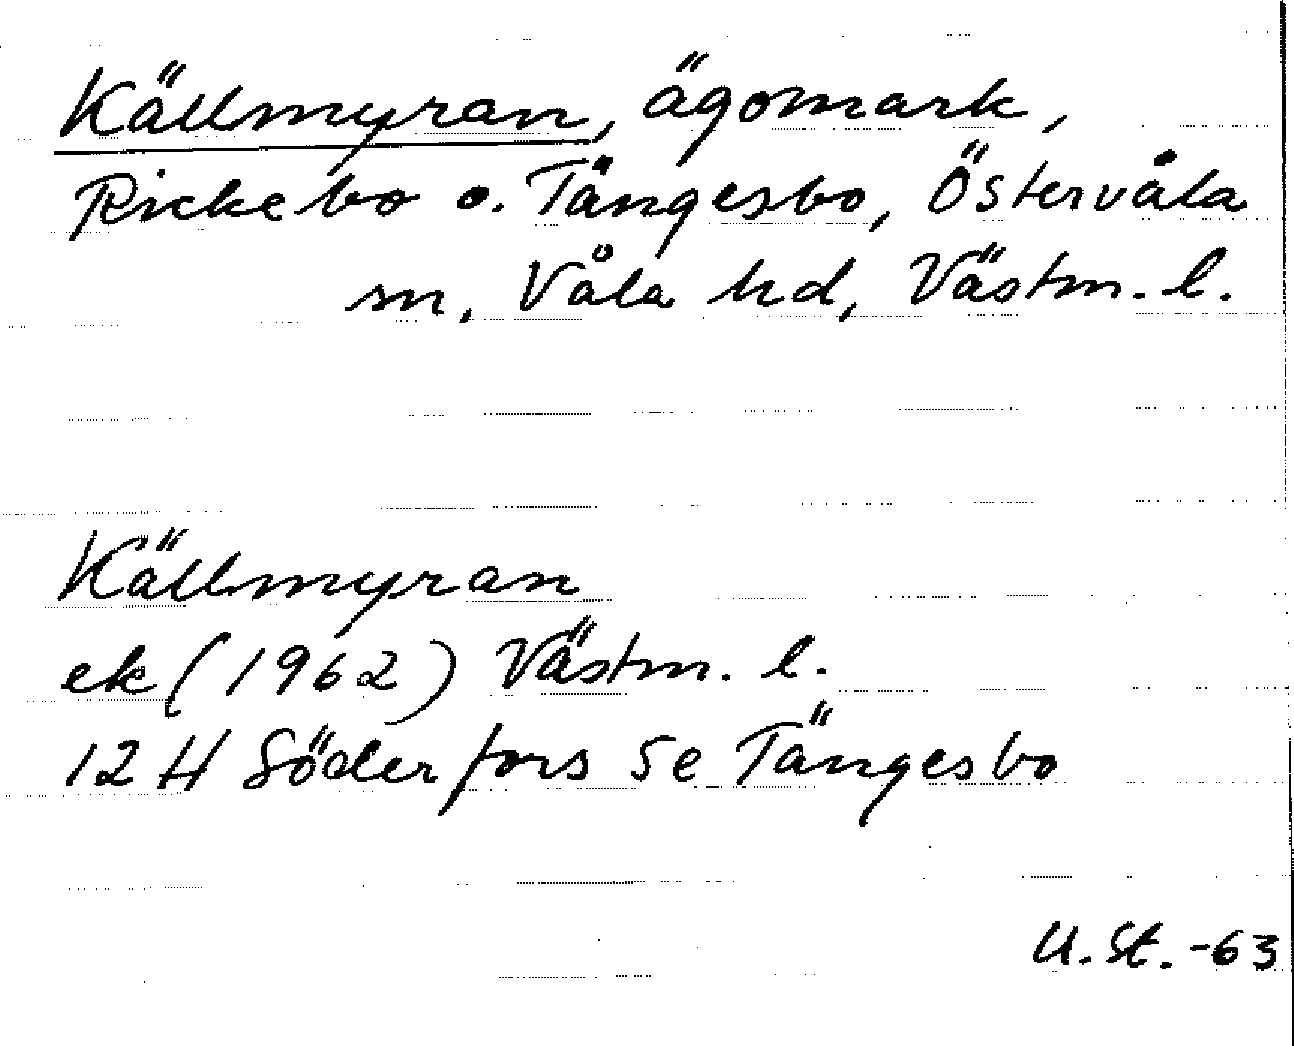 Källmyran, ägomark,
Rickebo o. Tängesbo, Östervåla
sn, Våla hd, Västm. l.
Källmyran
ek (1962) Västm. l.
12 H Söderfors 5e Tängesbo
U. St. -63